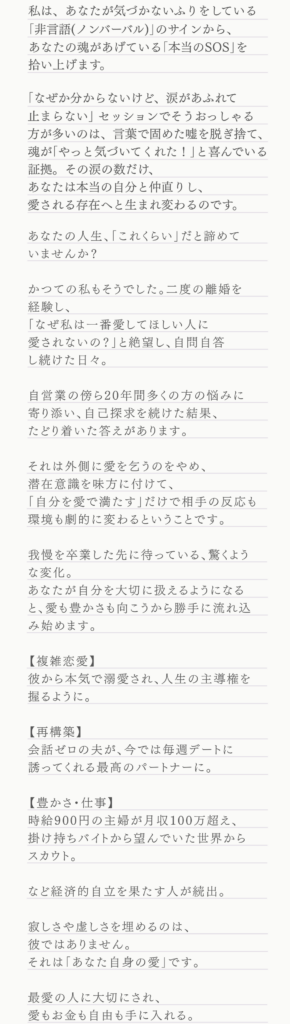 私は、あなたが気づかないふりをしている
「非言語(ノンバーバル)」のサインから、
あなたの魂があげている「本当のSOS」を
拾い上げます。
「なぜか分からないけど、涙があふれて
止まらない」 セッションでそうおっしゃる
方が多いのは、言葉で固めた嘘を脱ぎ捨て、
魂が「やっと気づいてくれた！」と喜んでいる
証拠。その涙の数だけ、
あなたは本当の自分と仲直りし、
愛される存在へと生まれ変わるのです。
あなたの人生、「これくらい」だと諦めて
いませんか？
かつての私もそうでした。二度の離婚を
経験し、
「なぜ私は一番愛してほしい人に
愛されないの？」と絶望し、自問自答
し続けた日々。
自営業の傍ら20年間多くの方の悩みに
寄り添い、自己探求を続けた結果、
たどり着いた答えがあります。
それは外側に愛を乞うのをやめ、
潜在意識を味方に付けて、
「自分を愛で満たす」だけで相手の反応も
環境も劇的に変わるということです。
我慢を卒業した先に待っている、驚くよう
な変化。
あなたが自分を大切に扱えるようになる
と、愛も豊かさも向こうから勝手に流れ込
み始めます。
【複雑恋愛】
彼から本気で溺愛され、人生の主導権を
握るように。
【再構築】
会話ゼロの夫が、今では毎週デートに
誘ってくれる最高のパートナーに。
【豊かさ・仕事】
時給900円の主婦が月収100万超え、
掛け持ちバイトから望んでいた世界から
スカウト。
など経済的自立を果たす人が続出。
寂しさや虚しさを埋めるのは、
彼ではありません。
それは「あなた自身の愛」です。
最愛の人に大切にされ、
愛もお金も自由も手に入れる。